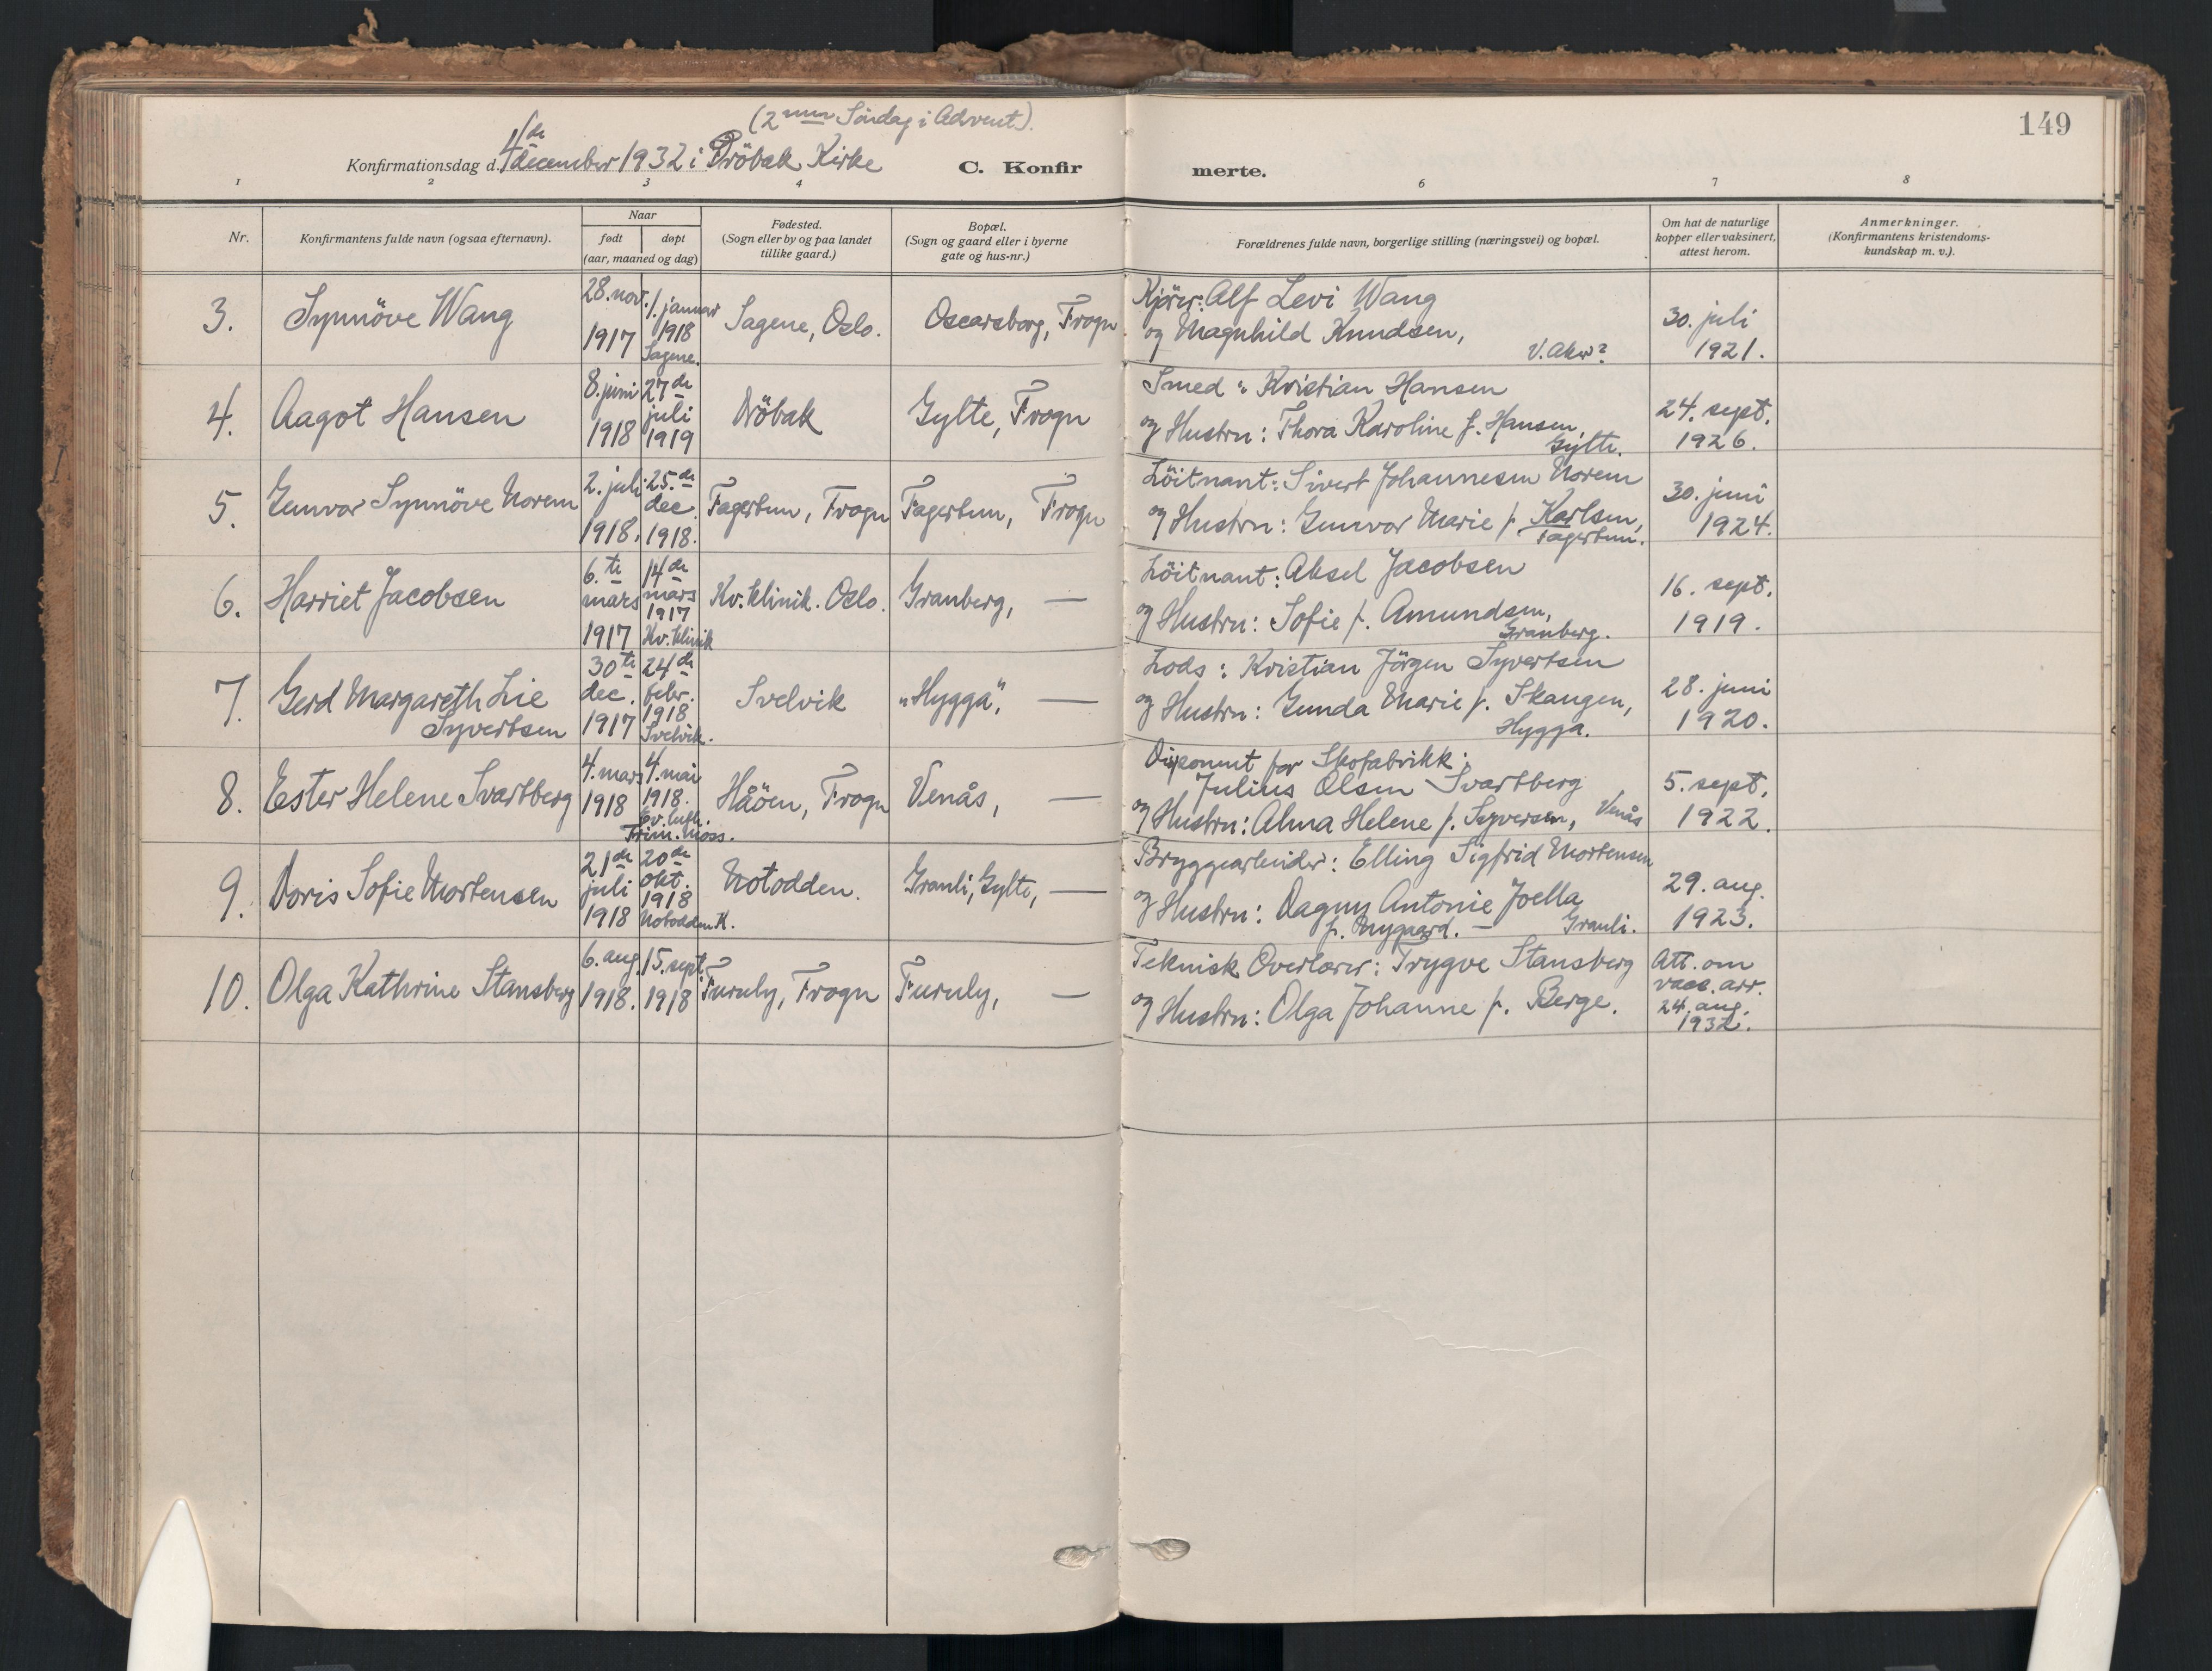 149
(2nen Søndag i Advent).
Konfirmationsdag d. 4de december 1932 i Drøbak Kirke
C. Konfirmerte.
1 2 3 4 6 7 8
Nr.
Konfirmantens fulde navn (ogsaa efternavn).
Naar
født døpt
(aar, maaned og dag)
Fødested.
(Sogn eller by og paa landet
tillike gaard.)
Bopæl.
(Sogn og gaard eller i byerne
gate og hus-nr.)
Forældrenes fulde navn, borgerlige stilling (næringsvei) og bopæl.
Om hat de naturlige
kopper eller vaksinert,
attest herom.
Anmerkninger.
(Konfirmantens kristendoms-
kundskap m. v.).
3. Synnöve Wang
28. nov. 1917
1. januar 1918 Sagene.
Sagene, Oslo.
Oscarsborg, Frogn
Kjörer: Alf Levi Wang
og Magnhild Knudsen,
V. Aker?
30. juli
1921.
4. Aagot Hansen
8. juni 1918
27de juli 1919
Dröbak
Gylte, Frogn
Smed: Kristian Hansen
og Hustru: Thora Karoline f. Hansen,
Gylte.
24. sept.
1926.
5. Gunvor Synnöve Norem
2. juli 1918.
25.de dec. 1918.
Fagertun, Frogn
Fagertun, Frogn
Löitnant: Sivert Johannesen Norem
og Hustru: Gunvor Marie f. Karlsen,
Fagertun.
30. juni
1924.
6. Harriet Jacobsen
6.te mars 1917
14de mars 1917 Kv. klinik
Kv. klinik. Oslo.
Granberg, —
Löitnant: Aksel Jacobsen
og Hustru: Sofie f. Amundsen,
Granberg.
16. sept.
1919.
7. Gerd Margareth Lie
Syvertsen
30te dec. 1917
24de febr. 1918 Svelvik.
Svelvik
"Hygga", —
Lods: Kristian Jörgen Syvertsen
og Hustru: Gunda Marie f. Skaugen,
Hygga.
28. juni
1920.
8. Ester Helene Svartberg
4. mars 1918
4. mai 1918. Ev. luth. Frim. Moss.
Håöen, Frogn
Venås, —
Disponent for Skofabrikk:
Julius Olsen Svartberg
og Hustru: Alma Helene f. Syversen, Venås
5. sept.
1922.
9. Doris Sofie Mortensen
21de juli 1918
20de okt. 1918 Notodden K.
Notodden.
Granli, Gylte, —
Bryggearbeider: Elling Sigfrid Mortensen
og Hustru: Dagny Antonie Joella
f. Nygaard. — Granli.
29. aug.
1923.
10. Olga Kathrine Stansberg
6. aug. 1918.
15. sept. 1918
Furuly, Frogn
Furuly, —
Teknisk Overlærer: Trygve Stansberg
og Hustru: Olga Johanne f. Berge.
Att. om
vacc. arr.
24. aug.
1932.